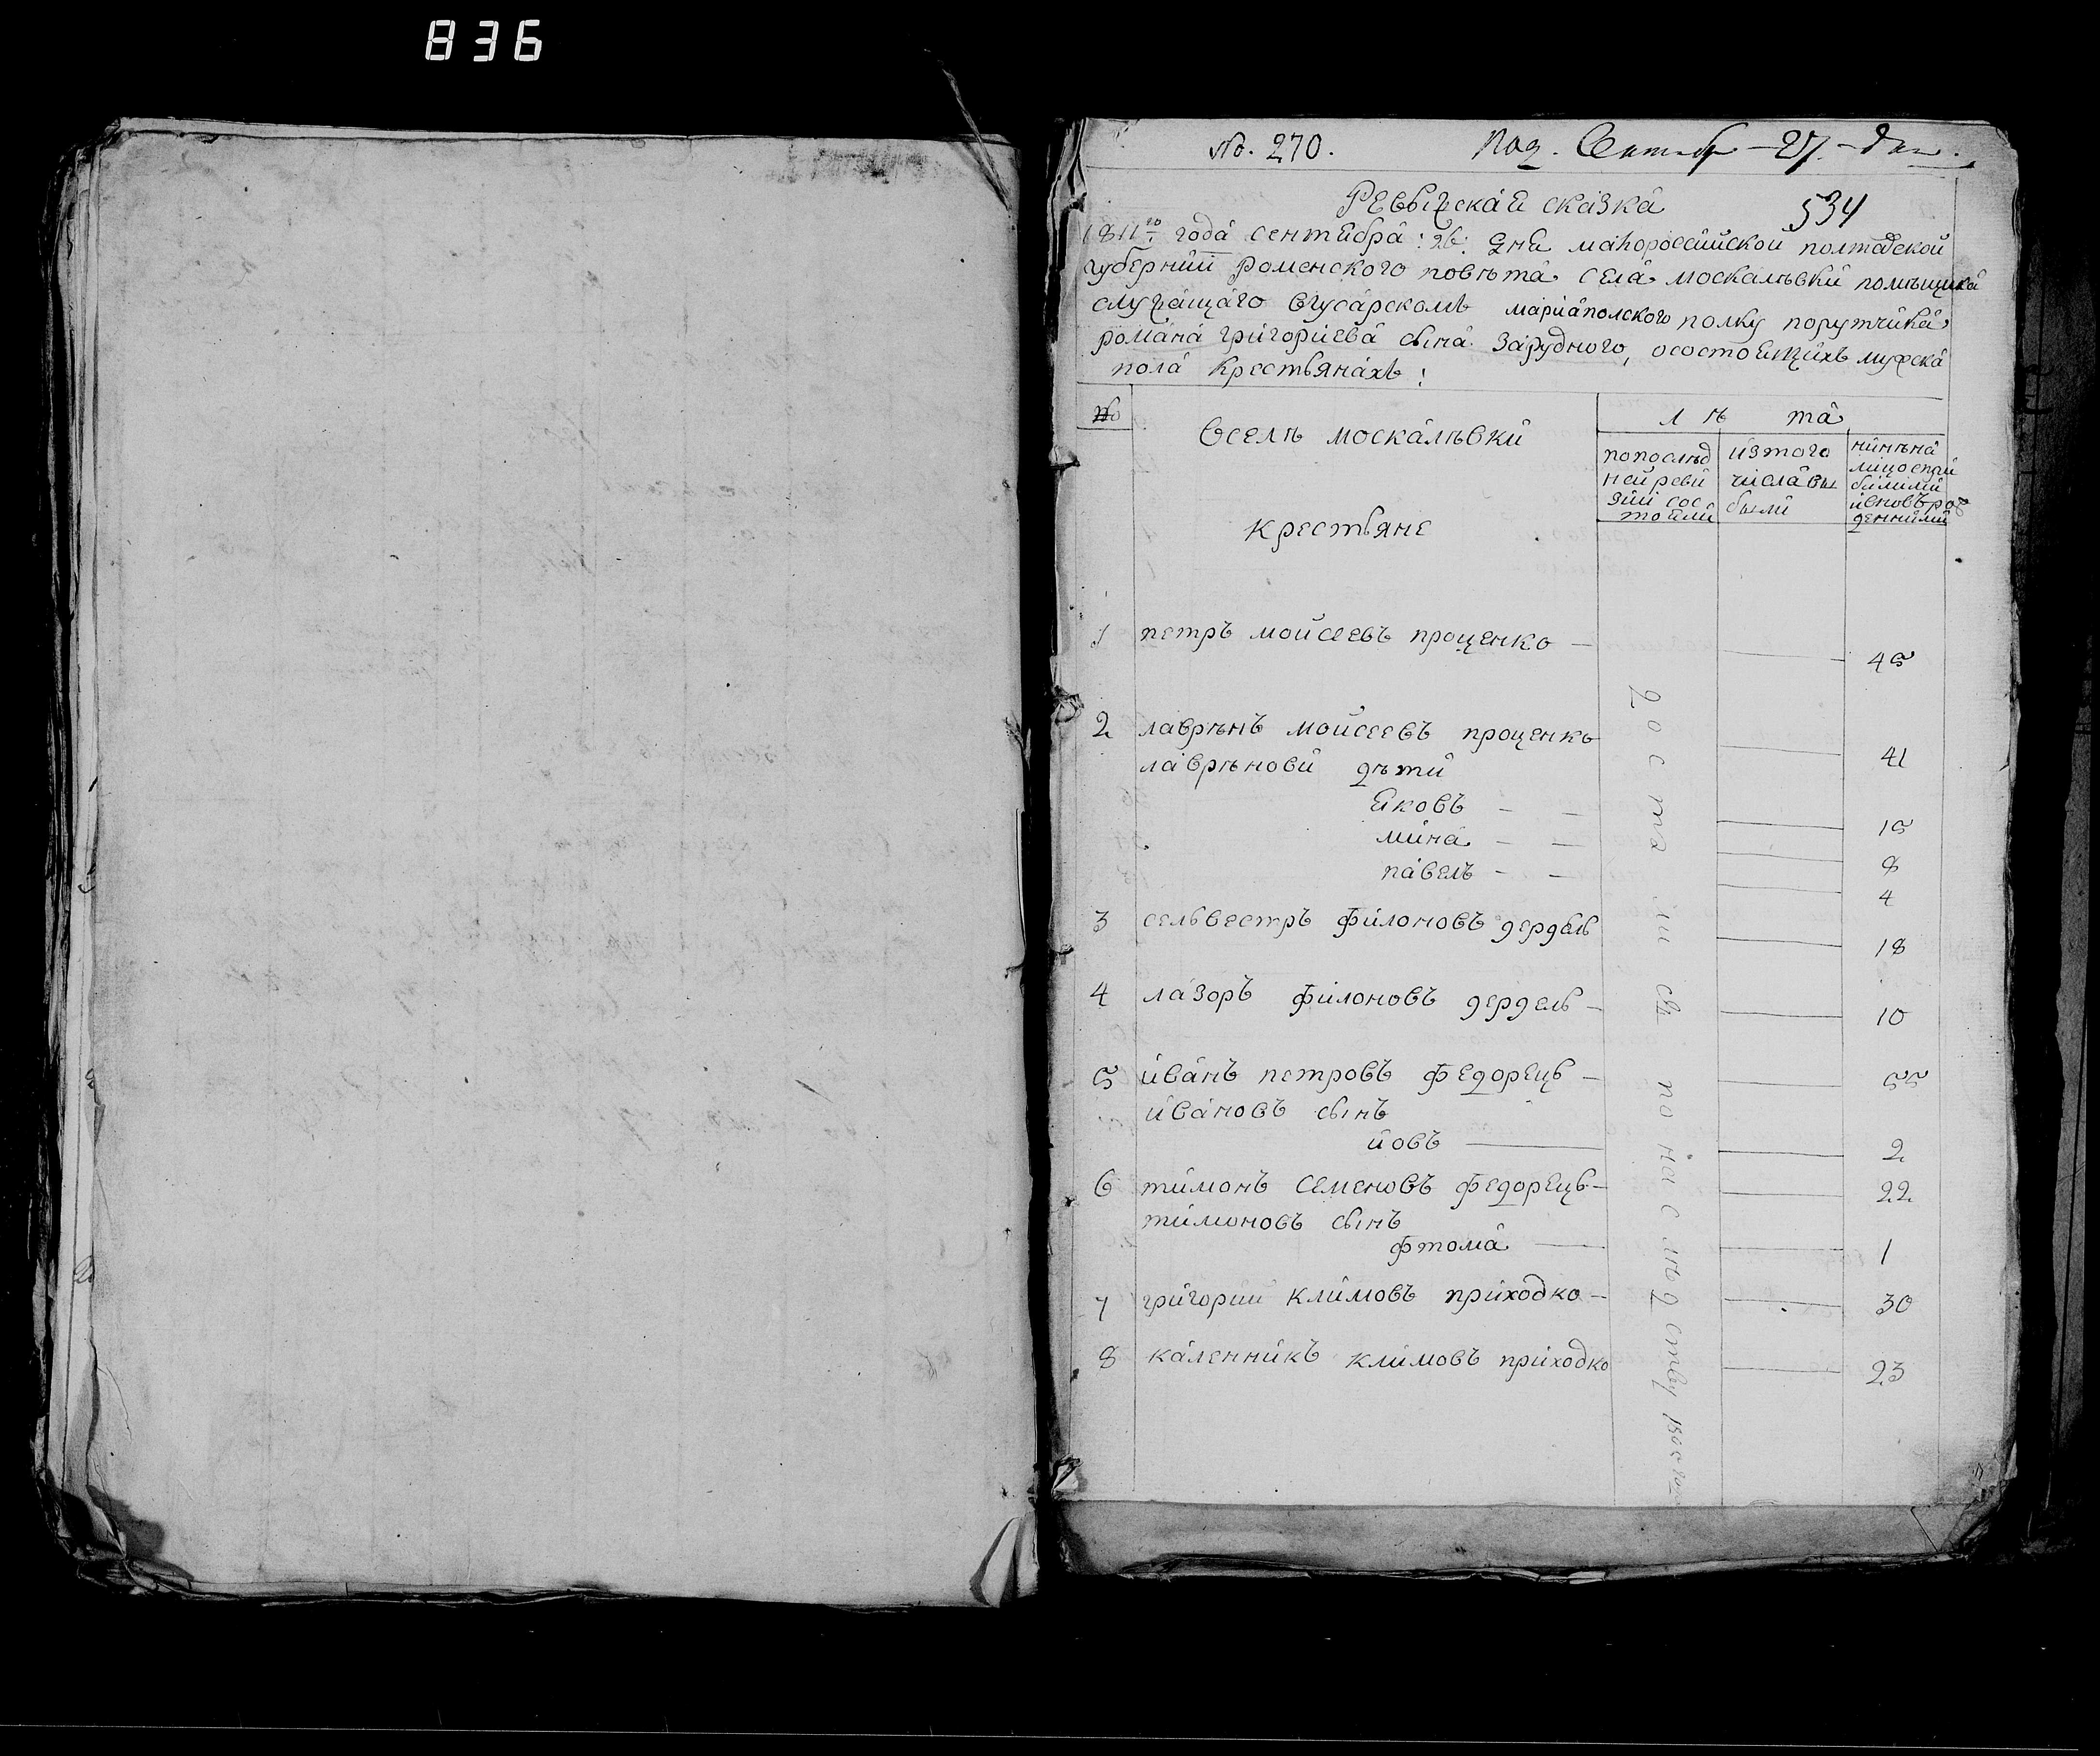 836
No. 270.
Под. Сентяб 27. дня.
Ревызская сказка
534
1811го года сентября: 26: дня малороссийской полтавской
губернии роменского повѣта села москалѣвки помѣщика
служащаго вгусарскомъ мариаполского полку порутчика
романа григориева сына зарудного, осостоящихъ мужска
пола крестьянахъ:
№
Вселѣ москалѣвки
крестьяне
лѣта
попослѣд
ней реви
зии сос
тояли
изтого
числа вы
были
нинѣна
лицо спри
билими
ивновъ рож
денними
1 петръ мойсеевъ проценко — 45
2 лаврѣнъ мойсеевъ проценко 41
лаврѣнови дѣти
яковъ — — 15
мина — — 8
павелъ — — 4
3 сельвестръ филоновъ дердель 18
4 лазоръ филоновъ дердель — 10
5 иванъ петровъ федорецъ — 55
ивановъ сынъ
иовъ — 2
6 тимонъ семеновъ федорецъ — 22
тимоновъ сынъ
фтома — 1
7 григории климовъ приходко — 30
8 каленникъ климовъ приходко 23
достались по наслѣдству